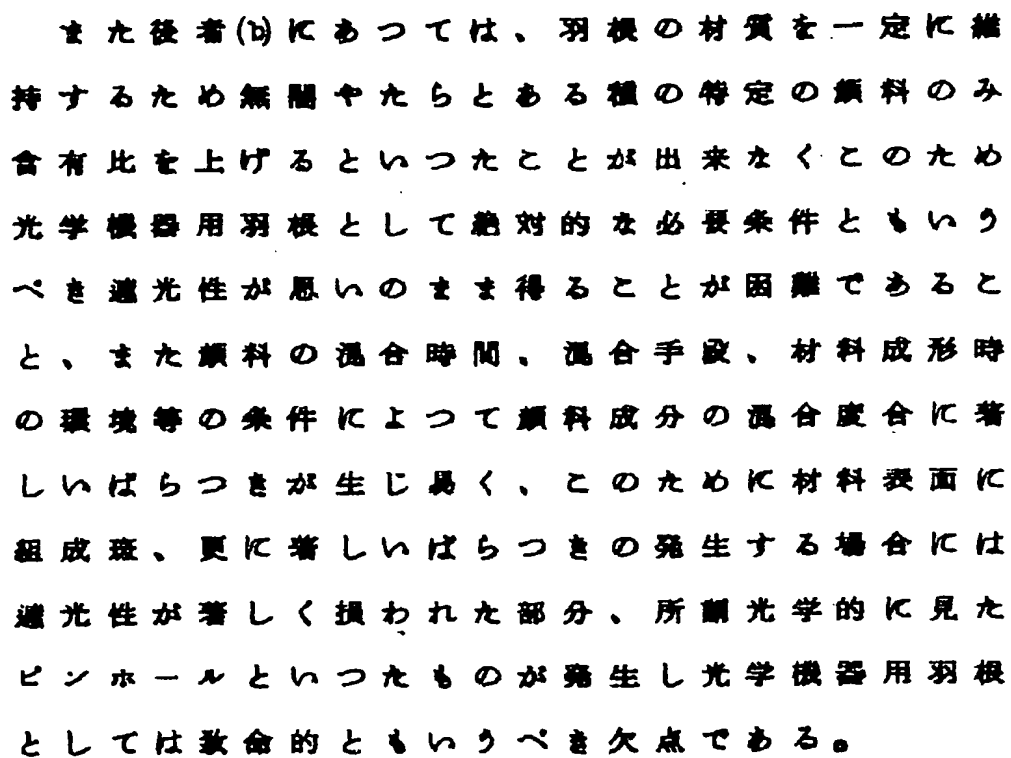 また後者(b)にあつては、羽根の材質を一定に維
持するため無闇やたらとある種の特定の顔料のみ
含有比を上げるといつたことが出来なくこのため
光学機器用羽根として絶対的な必要条件ともいう
べき遮光性が思いのまま得ることが困難であるこ
と、また顔料の混合時間、混合手段、材料成形時
の環境等の条件によつて顔料成分の混合度合に著
しいばらつきが生じ易く、このために材料表面に
組成斑、更に著しいばらつきの発生する場合には
遮光性が著しく損われた部分、所謂光学的に見た
ピンホールといつたものが発生し光学機器用羽根
としては致命的ともいうべき欠点である。